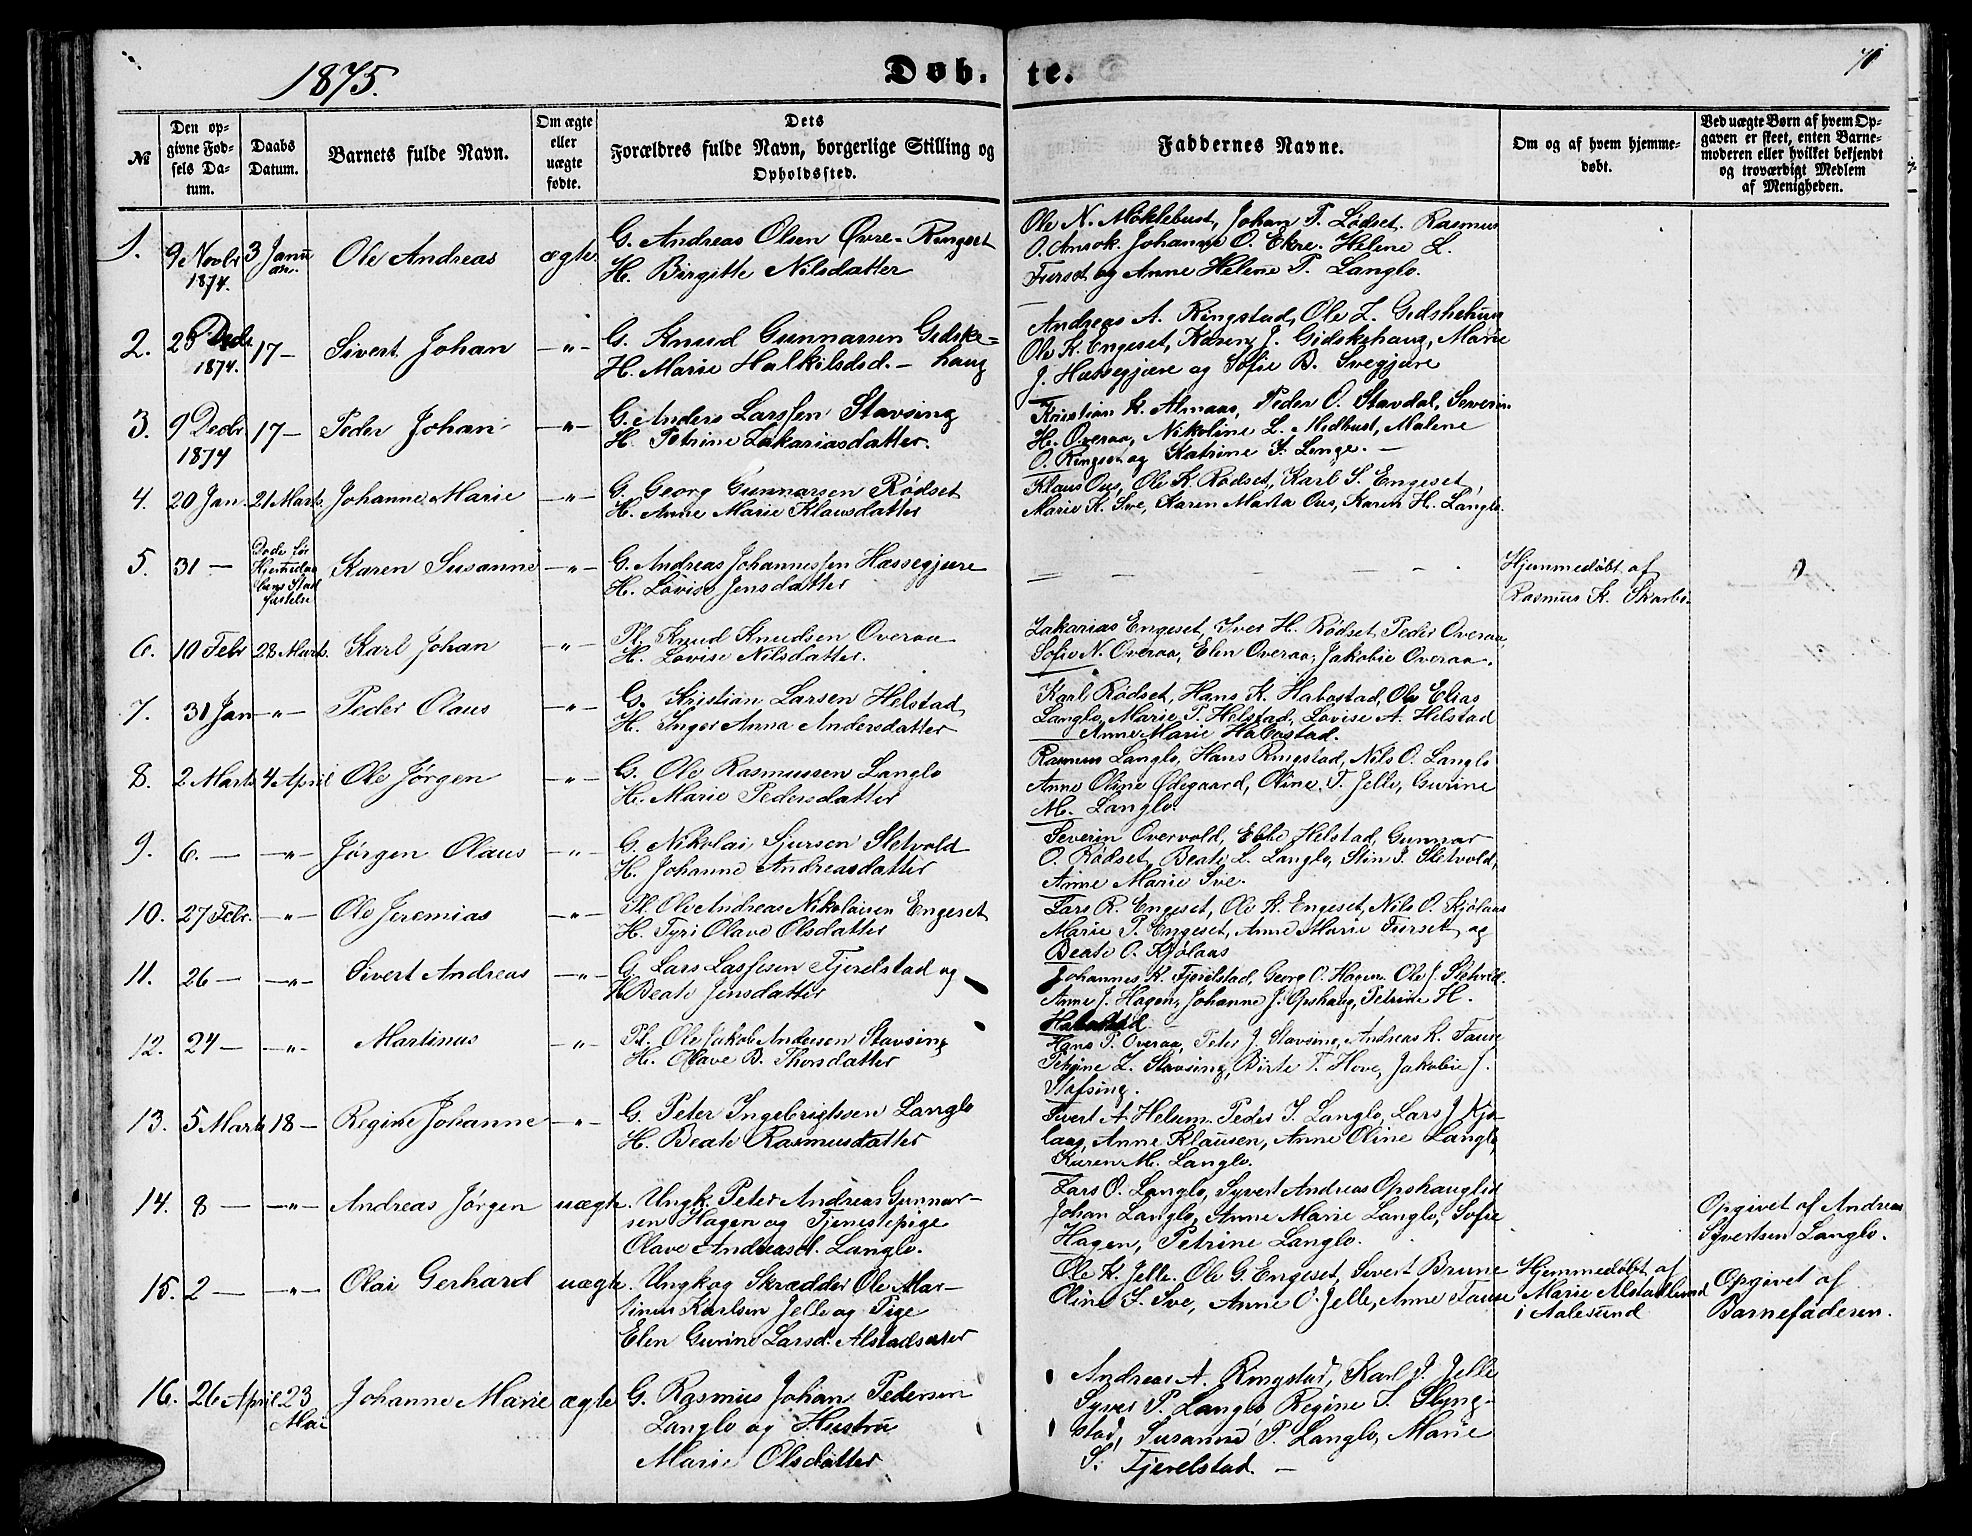 1875.
Døb-
te.
70
№
Den op-
givne Fød-
sels Da-
tum.
Daabs
Datum.
Barnets fulde Navn.
Om ægte
eller
uægte
fødte.
Dets
Forældres fulde Navn, borgerlige Stilling og
Opholdssted.
Faddernes Navne.
Om og af hvem hjemme-
døbt.
Ved uægte Børn af hvem Op-
gaven er skeet, enten Barne-
moderen eller hvilket bekjendt
og troværdigt Medlem
af Menigheden.
1.
9 Novbr
1874.
3 Janu
ar.
Ole Andreas
ægte
G. Andreas Olsen Øvre-Ringset
H. Birgitte Nilsdatter
Ole N. Moklebust, Johan T. Lødset. Rasmus
O. Amsok. Johanne O. Ekre. Helene L.
Furset og Anne Helene P. Langlo.
2.
26 Decbr
1874.
17 —
Sivert Johan
— " —
G. Knud Gunnarsen Gidske-
H. Marie Halkilsdtd. — haug
Andreas A. Ringstad, Ole L. Gidskehaug
Ole K. Engeset, Karen J. Gidskehaug, Marie
J. Hassegjære og Sofie B. Svegjære
3.
9 Decbr
1874
17 —
Peder Johan
— " —
G. Anders Larssen Stavsing
H. Petrine Zakariasdatter.
Kristian K. Almaas, Peder O. Stavdal, Severin
H. Overaa, Nikoline L. Midbust, Malene
O. Ringset og Katrine I. Longe. —
4.
20 Jan.
21 Marts.
Johanne Marie
— " —
G. Georg Gunnarsen Rødset
H. Anne Marie Klausdatter
Klaus Ous, Ole K. Rødset, Karl S. Engeset,
Marie K. Sve, Karen Marta Ous, Karen H. Langlo.
5.
31 —
Døde før
Hjemmedaa
bens Stad
fæstelse
Karen Susanne
— " —
G. Andreas Johannessen Hassegjere
H. Lovise Jensdatter
— — — — — —
Hjemmedøbt af
Rasmus K. Skarbø.
6.
10 Febr
28 Marts.
Karl Johan
— " —
Pl. Knud Knudsen Overaa
H. Lovise Nilsdatter.
Zakarias Engeset, Iver H. Rødset, Peder Overaa,
Sofie N. Overaa, Elen Overaa, Jakobie Overaa.
7.
31 Jan
— " —
Peder Olaus
— " —
G. Kristian Larsen Helstad
H. Inger Anna Andersdatter
Karl Rødset, Hans K. Habostad, Ole Elias
Langlo, Marie P. Helstad, Lovise A. Helstad
Anne Marie Habostad.
8.
2 Marts
4 April
Ole Jørgen
— " —
G. Ole Rasmussen Langlo
H. Marie Pedersdatter
Rasmus Langlo, Hans Ringstad, Nils O. Langlo
Anne Oline Ødegaard, Oline T. Jelle, Gurine
M. Langlo.
9.
6. —
— " —
Jørgen Olaus
— " —
G. Nikolai Sjursen Sletvold
H. Johanne Andreasdatter
Severin Overvold, Ebbe Helstad, Gunnar
O. Rødset, Beate L. Langlo, Stin J. Sletvold,
Anne Marie Sve.
10.
27 Febr.
— " —
Ole Jeremias
— " —
Pl. Ole Andreas Nikolaisen Engeset
H. Syri Olave Olsdatter
Lars R. Engeset, Ole K. Engeset, Nils O. Kjølaas
Marie P. Engeset, Anne Marie Furset og
Beate O. Kjølaas
11.
26 —
— " —
Sivert Andreas
— " —
G. Lars Lassesen Fjerelstad og
H. Beate Jensdatter
Johannes K. Fjerelstad, Georg O. Hagen, Ole J. Sletvold.
Anne J. Hagen, Johanne J. Opshaug, Petrine H.
Habostad
12.
24 —
— " —
Martinus
— " —
Pl. Ole Jakob Andersen Stavsing
H. Olave B. Thorsdatter
Hans P. Overaa, Peter J. Stavsing, Andreas K. Fause
Petrine L. Stavsing, Birte T. Hove, Jakobie J.
Stafsing.
13.
5 Marts
18 —
Regine Johanne
— " —
G. Peter Ingebrigtsen Langlo
H. Beate Rasmusdatter
Sivert A. Helsem. Peder I. Langlo, Lars J. Kjø-
laas, Anne Klausen, Anne Oline Langlo,
Karen M. Langlo.
14.
8 —
— " —
Andreas Jørgen
uægte.
Ungk. Peter Andreas Gunnar-
sen Hagen og Tjenestepige
Olave Andreasd. Langlo.
Lars O. Langlo, Syvert Andreas Opshauglid
Johan Langlo, Anne Marie Langlo, Sofie
Hagen, Petrine Langlo.
Opgivet af Andreas
Syvertsen Langlo.
15.
2 —
— " —
Olai Gerhard
uægte.
Ungk og Skrædder Ole Mar-
tinus Karlsen Jelle og Pige
Elen Gurine Larsd. Alstadsæter
Ole K. Jelle. Ole G. Engeset, Sivert Brune
Oline S. Sve, Anne O. Jelle, Anne Fause
Hjemmedøbt af
Marie Alstadlund
i Aalesund
Opgivet af
Barnefaderen.
16.
26 April
23
Mai
Johanne Marie
ægte
G. Rasmus Johan Pedersen
Langlo og Hustru
Marie Olsdatter
Andreas A. Ringstad, Karl J. Jelle
Syver P. Langlo Regine S. Slyng-
stad, Susanne P. Langlo, Marie
S. Fjerelstad. —